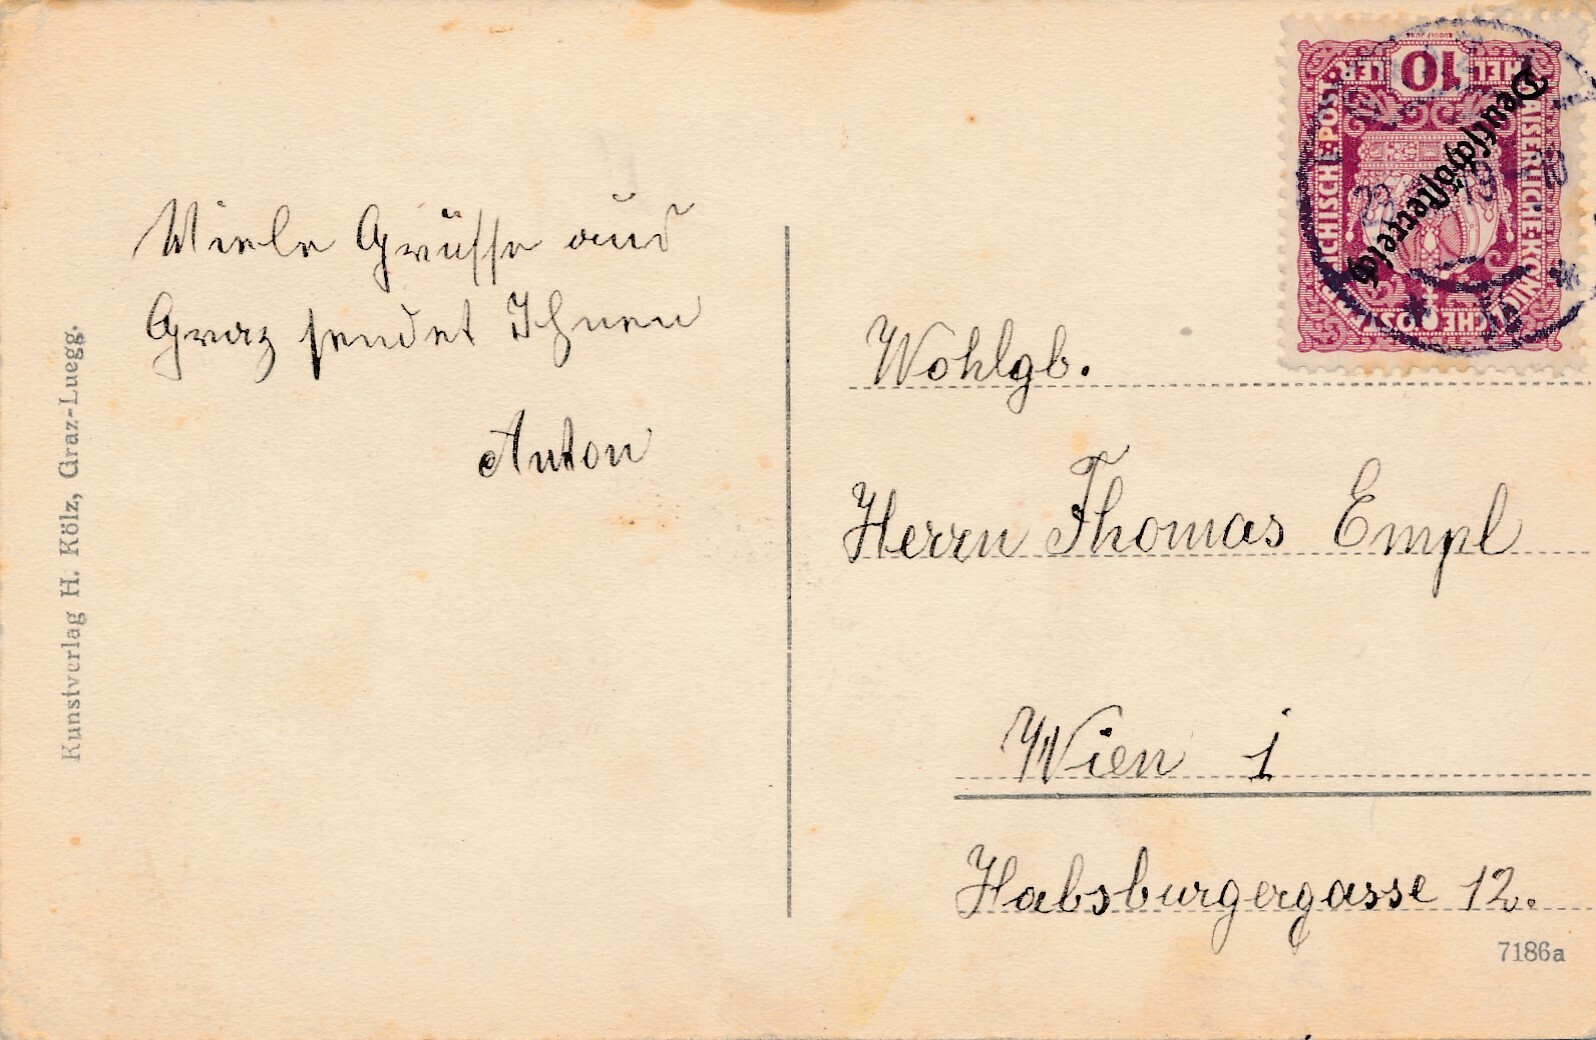 Viele Grüsse aus
Graz sendet Ihnen
Anton
Kunstverlag H. Kölz, Graz-Luegg.
HEL 10 LER
KAISERLICHE KÖNIGLICHE ÖSTERREICHISCHE POST
Deutschösterreich
Wohlgb.
Herrn Thomas Empl
Wien 1
Habsburgergasse 12.
7186a